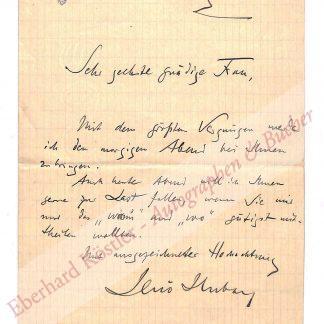 Sehr geehrte gnädige Frau,
Mit dem größten Vergnügen werde
ich den morgigen Abend bei Ihnen
zubringen.
Auch heute Abend will ich Ihnen
gerne zur Last fallen, wenn Sie mir
nur das „wann" und „wo" gütigst mit-
theilen wollten.
Mit ausgezeichneter Hochachtung
Jenö Hubay
Eberhard Köstler - Autographen & Bücher